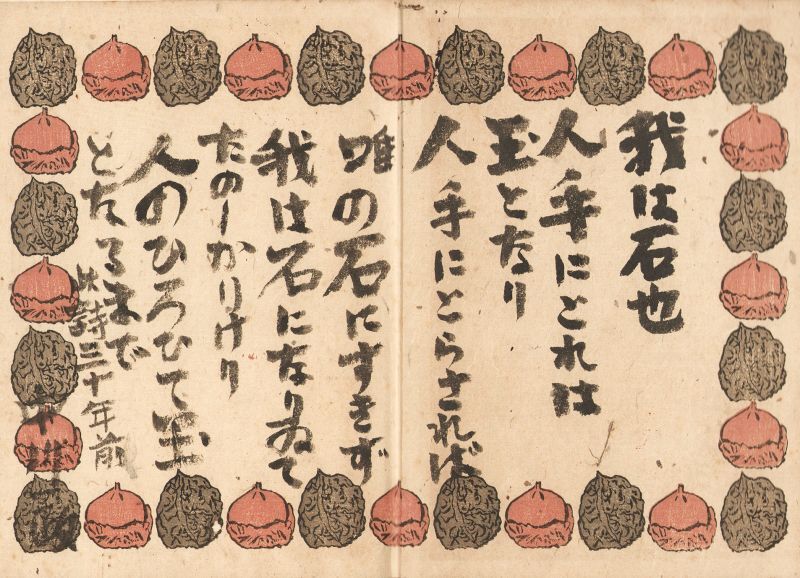 我は石也
人手にとれは
玉となり
人手にとらされば
唯の石にすきず
我は石になりゐて
たのしかりけり
人のひろひて玉
となるまで
此詩三十年前